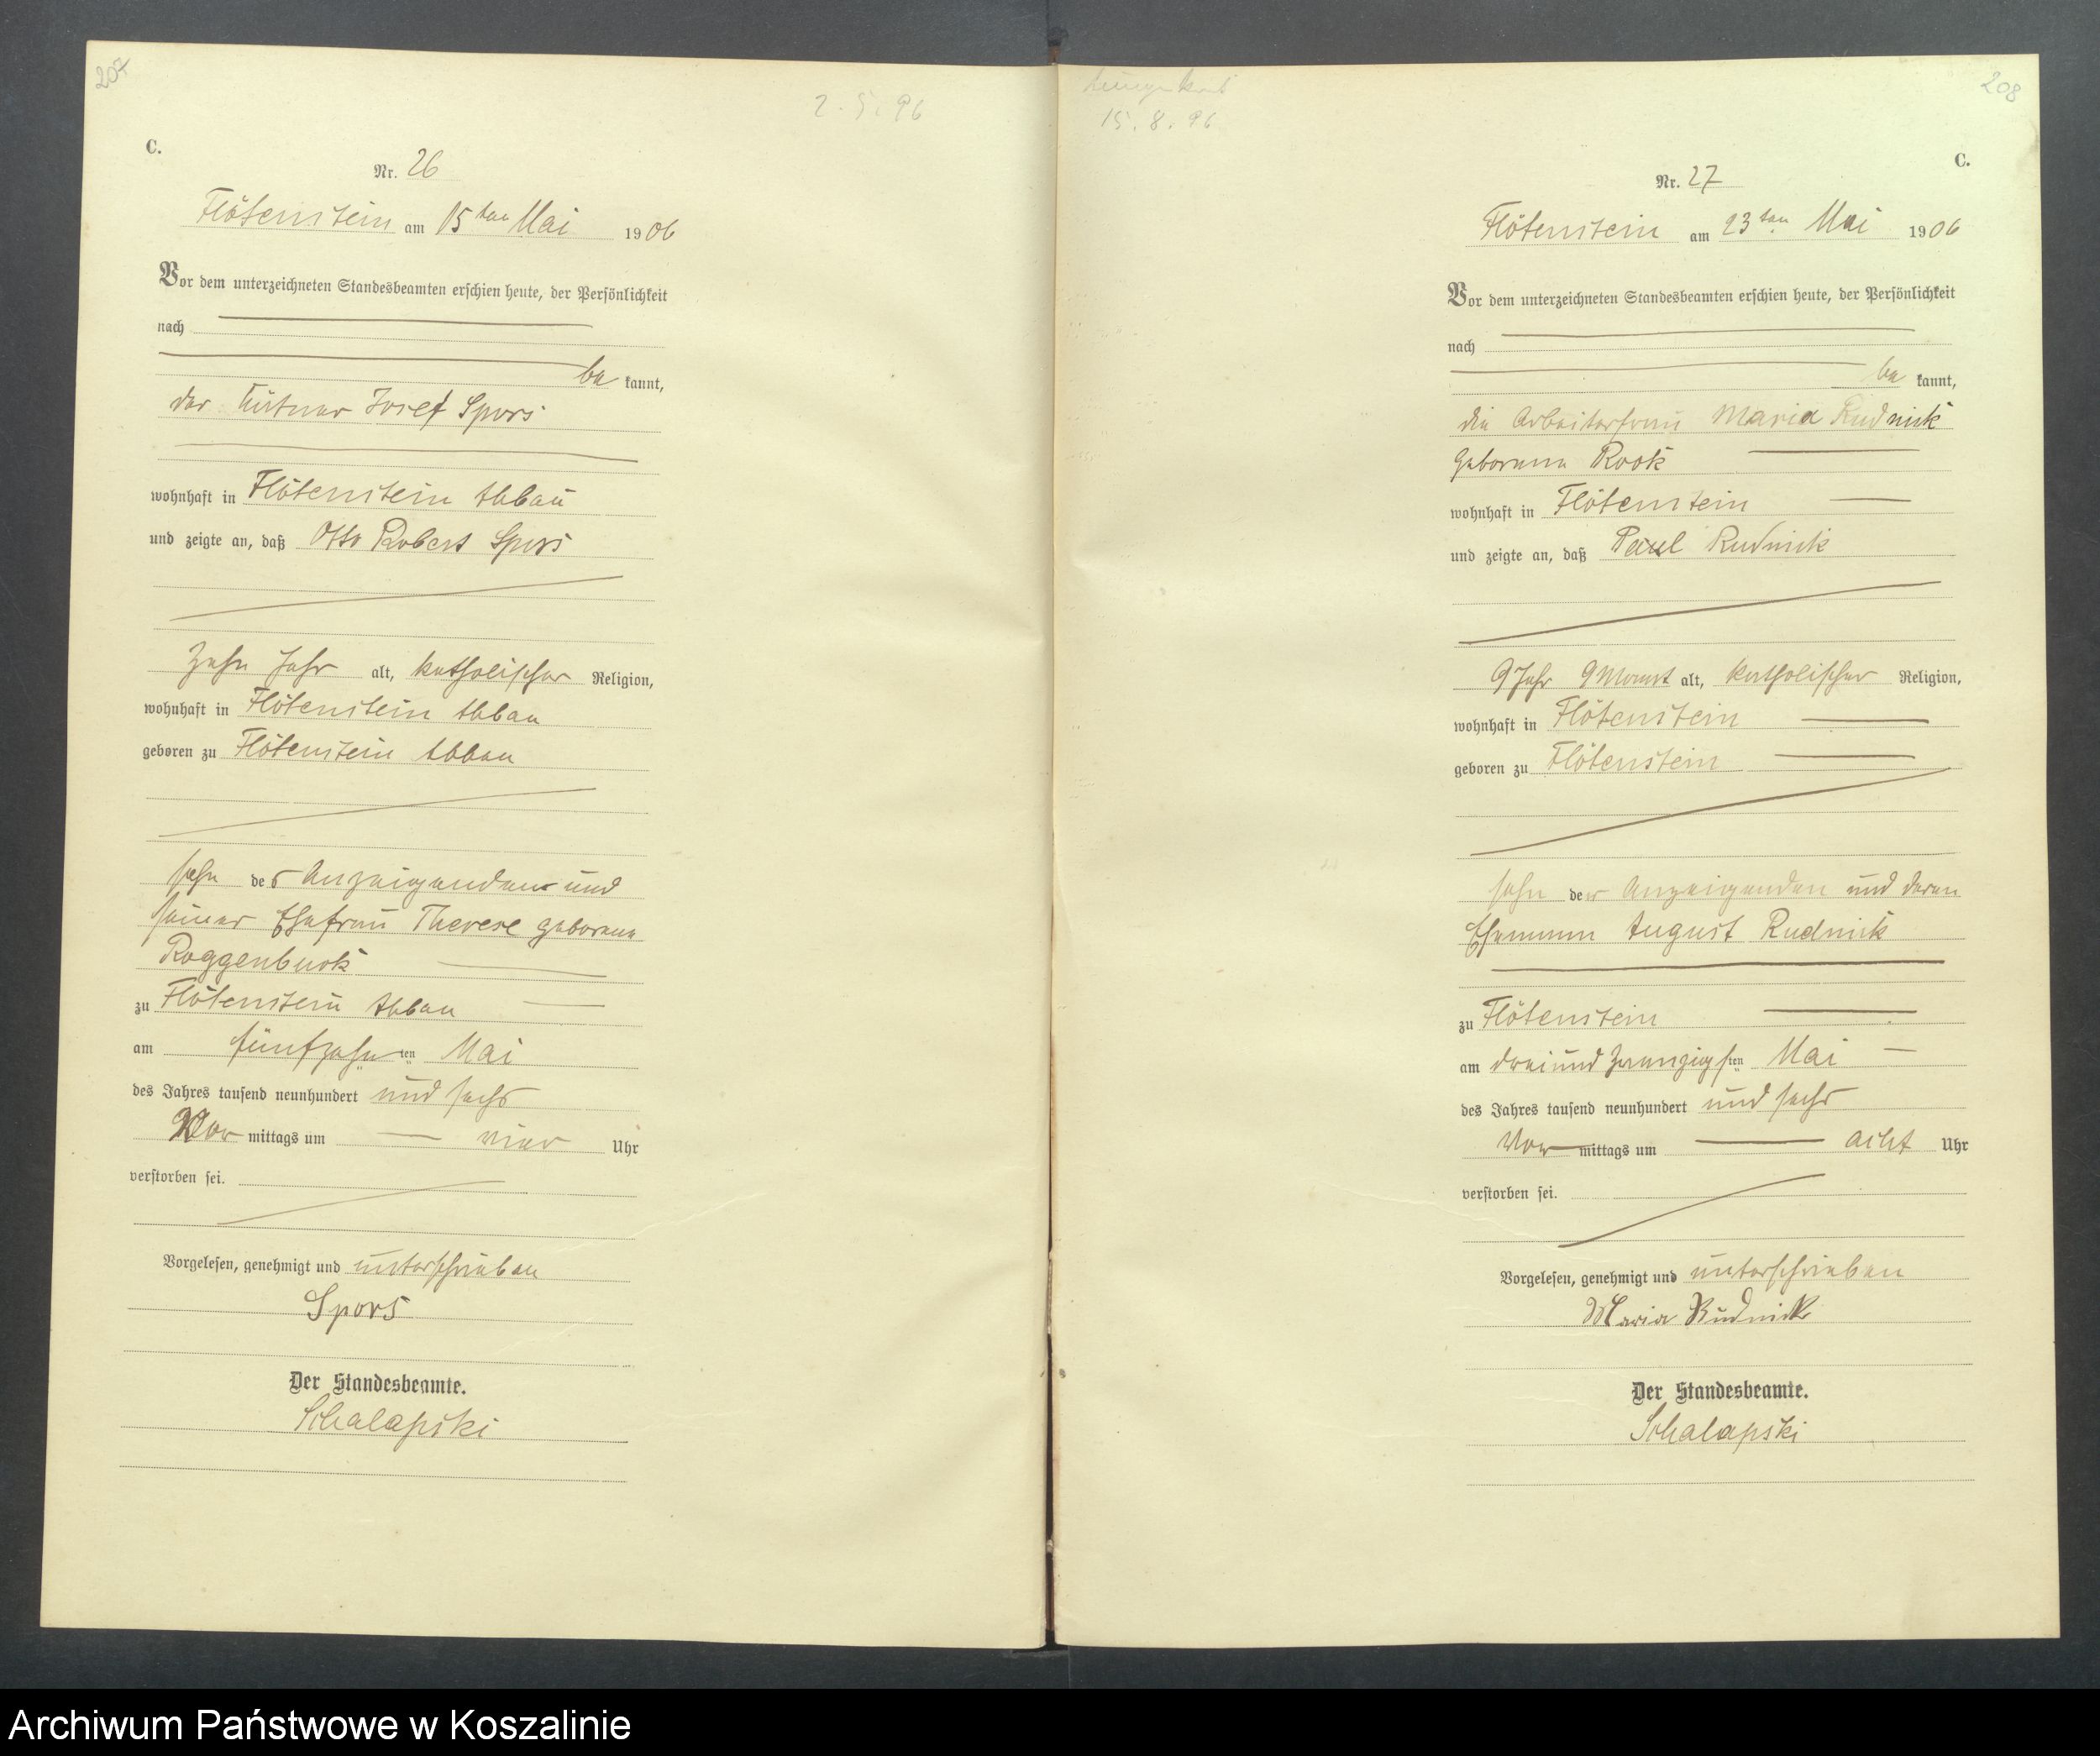 207
2.5.96
C.
Nr. 26
Flötenstein am 15ten Mai 1906
Vor dem unterzeichneten Standesbeamten erschien heute, der Persönlichkeit
nach
be kannt,
der Josef Spors
wohnhaft in Flötenstein Abbau
und zeigte an, daß Otto Robert Spors
zehn Jahr alt, katholischer Religion,
wohnhaft in Flötenstein Abbau
geboren zu Flötenstein Abbau
Sohn des Anzeigenden und
seiner Ehefrau Therese geborene
Roggenbuck
zu Flötenstein Abbau
am fünfzehnten Mai
des Jahres tausend neunhundert und sechs
Vor mittags um vier Uhr
verstorben sei.
Vorgelesen, genehmigt und unterschrieben
Spors
Der Standesbeamte.
Schalapski
208
15.8.96
C.
Nr. 27
Flötenstein am 23ten Mai 1906
Vor dem unterzeichneten Standesbeamten erschien heute, der Persönlichkeit
nach
be kannt,
die Arbeiterfrau Maria Rudnick
geborene Rook
wohnhaft in Flötenstein
und zeigte an, daß Paul Rudnick
9 Jahr 9 Monat alt, katholischer Religion,
wohnhaft in Flötenstein
geboren zu Flötenstein
Sohn der Anzeigenden und deren
Ehemann August Rudnick
zu Flötenstein
am dreiundzwanzigsten Mai
des Jahres tausend neunhundert und sechs
Vor mittags um acht Uhr
verstorben sei.
Vorgelesen, genehmigt und unterschrieben
Maria Rudnick
Der Standesbeamte.
Schalapski
Archiwum Państwowe w Koszalinie